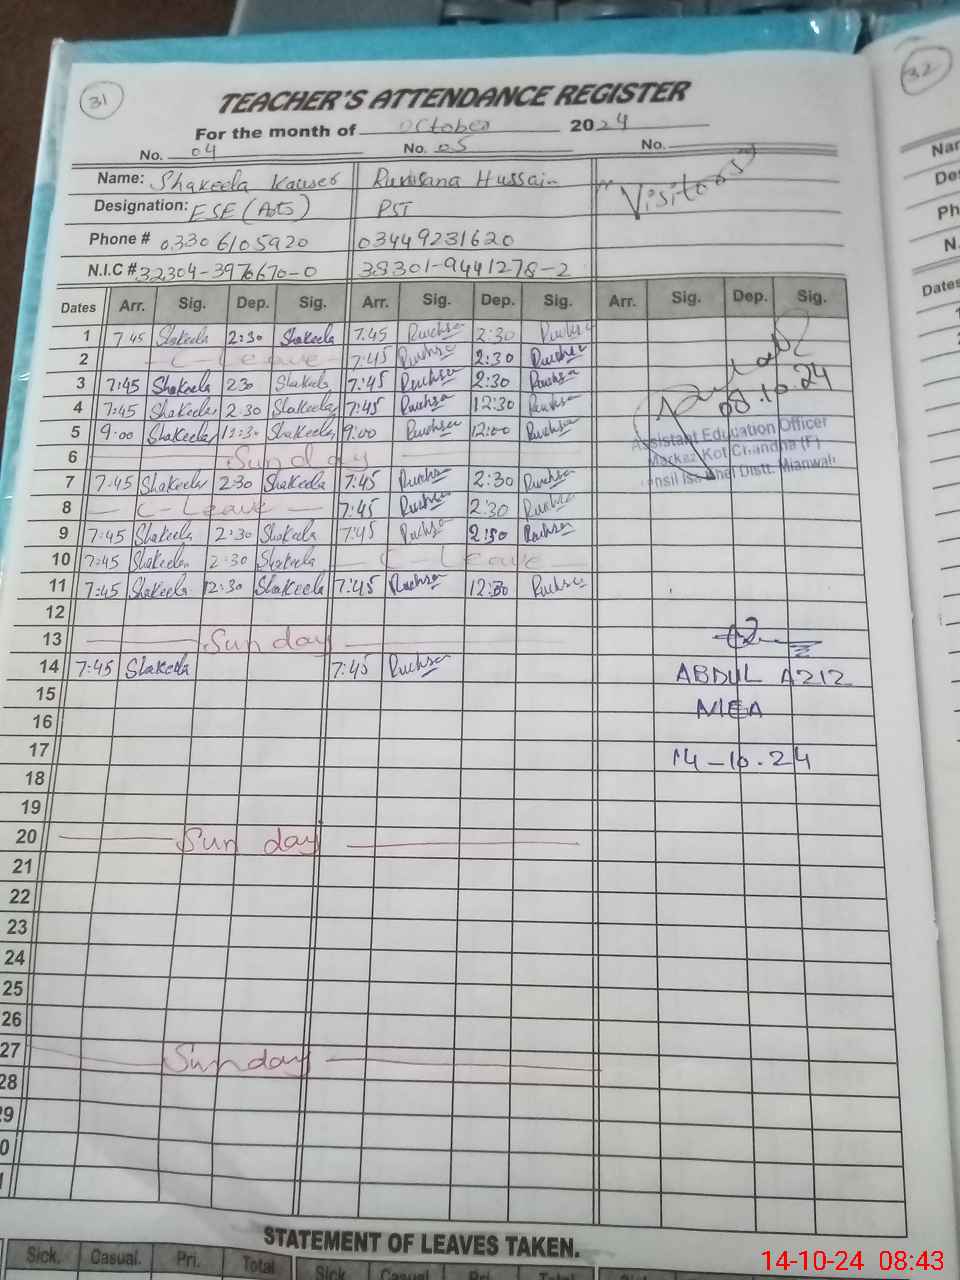 31
32
TEACHER'S ATTENDANCE REGISTER
For the month of October 2024
No. 04 No. 05 No.
Name: Shakeela Kauser Ruxsana Hussain "Visitors"
Designation: ESE (Arts) PST
Phone # 03306105920 03449231620
N.I.C # 32304-3976670-0 38301-9441278-2
Dates Arr. Sig. Dep. Sig. Arr. Sig. Dep. Sig. Arr. Sig. Dep. Sig.
1 7:45 Shakeela 2:30 Shakeela 7:45 Ruchsa 2:30 Ruchsa
2 C-Leave 7:45 Ruchsa 2:30 Ruchsa
3 7:45 Shakeela 2:30 Shakeela 7:45 Ruchsa 2:30 Ruchsa 08.10.24
4 7:45 Shakeela 2:30 Shakeela 7:45 Ruchsa 12:30 Ruchsa
5 9:00 Shakeela 12:30 Shakeela 9:00 Ruchsa 12:00 Ruchsa Assistant Education Officer
6 Sunday Markaz Kot Chandna (F)
7 7:45 Shakeela 2:30 Shakeela 7:45 Ruchsa 2:30 Ruchsa Distt. Mianwali
8 C-Leave 7:45 Ruchsa 2:30 Ruchsa
9 7:45 Shakeela 2:30 Shakeela 7:45 Ruchsa 2:30 Ruchsa
10 7:45 Shakeela 2:30 Shakeela C-Leave
11 7:45 Shakeela 12:30 Shakeela 7:45 Ruchsa 12:30 Ruchsa
12
13 Sunday
14 7:45 Shakeela 7:45 Ruchsa ABDUL AZIZ
15 MEA
16
17 14-10.24
18
19
20 Sunday
21
22
23
24
25
26
27 Sunday
28
29
0
1
STATEMENT OF LEAVES TAKEN.
Sick. Casual. Pri. Total Sick. Casual. Pri. Total Sick.
14-10-24 08:43